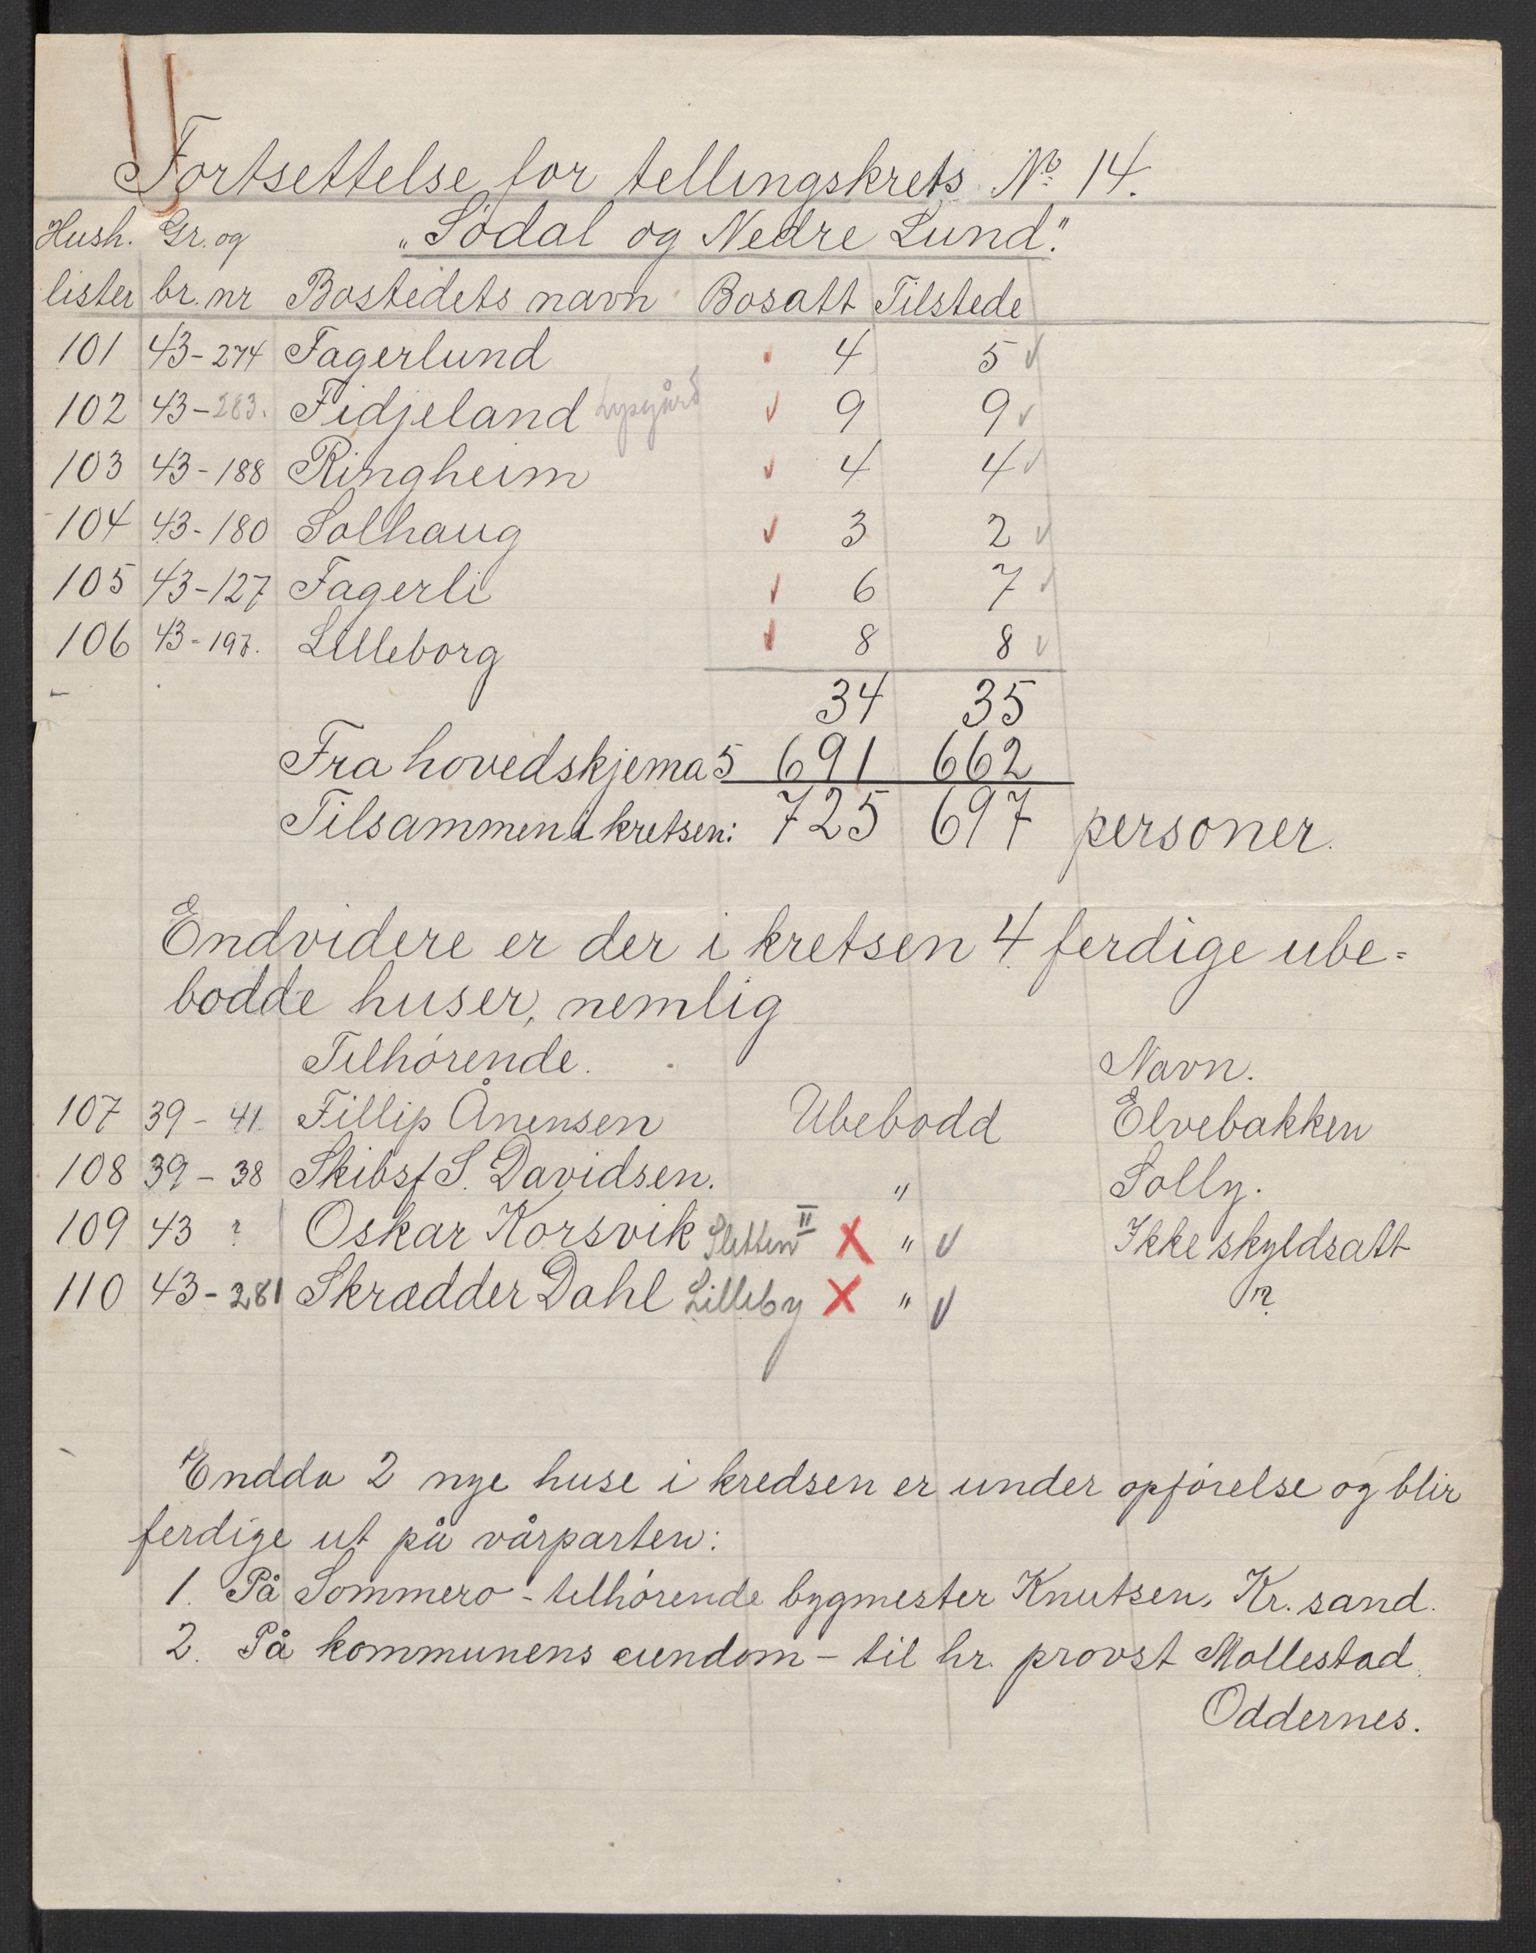 Fortsettelse for tellingskrets No 14.
Hush. Gr. og „Sødal og Nedre Lund."
lister br. nr Bostedets navn Bosatt Tilstede
101 43-274 Fagerlund 4 5 ✓
102 43-283. Fidjeland Lysgård ✓ 9 9 ✓
103 43-188 Ringheim ✓ 4 4 ✓
104 43-180 Solhaug ✓ 3 2 ✓
105 43-127 Fagerli ✓ 6 7 ✓
106 43-197. Lilleborg ✓ 8 8 ✓
34 35
Fra hovedskjema 5 691 662
Tilsammen i kretsen: 725 697 personer.
Endvidere er der i kretsen 4 ferdige ube-
bodde huser, nemlig
Tilhørende. Navn.
107 39-41 Fillip Ånensen Ubebodd Elvebakken
108 39-38 Skibsf S. Davidsen. " Solly.
109 43 ? Oskar Korsvik Sletten II X " ✓ Ikke skyldsatt
110 43-281 Skrædder Dahl Lilleby X " ✓ ?
Endda 2 nye huse i kredsen er under opførelse og blir
ferdige ut på vårparten:
1. På Sommero - tilhørende bygmester Knutsen, Kr. sand.
2. På kommunens eiendom - til hr. provst Mollestad
Oddernes.